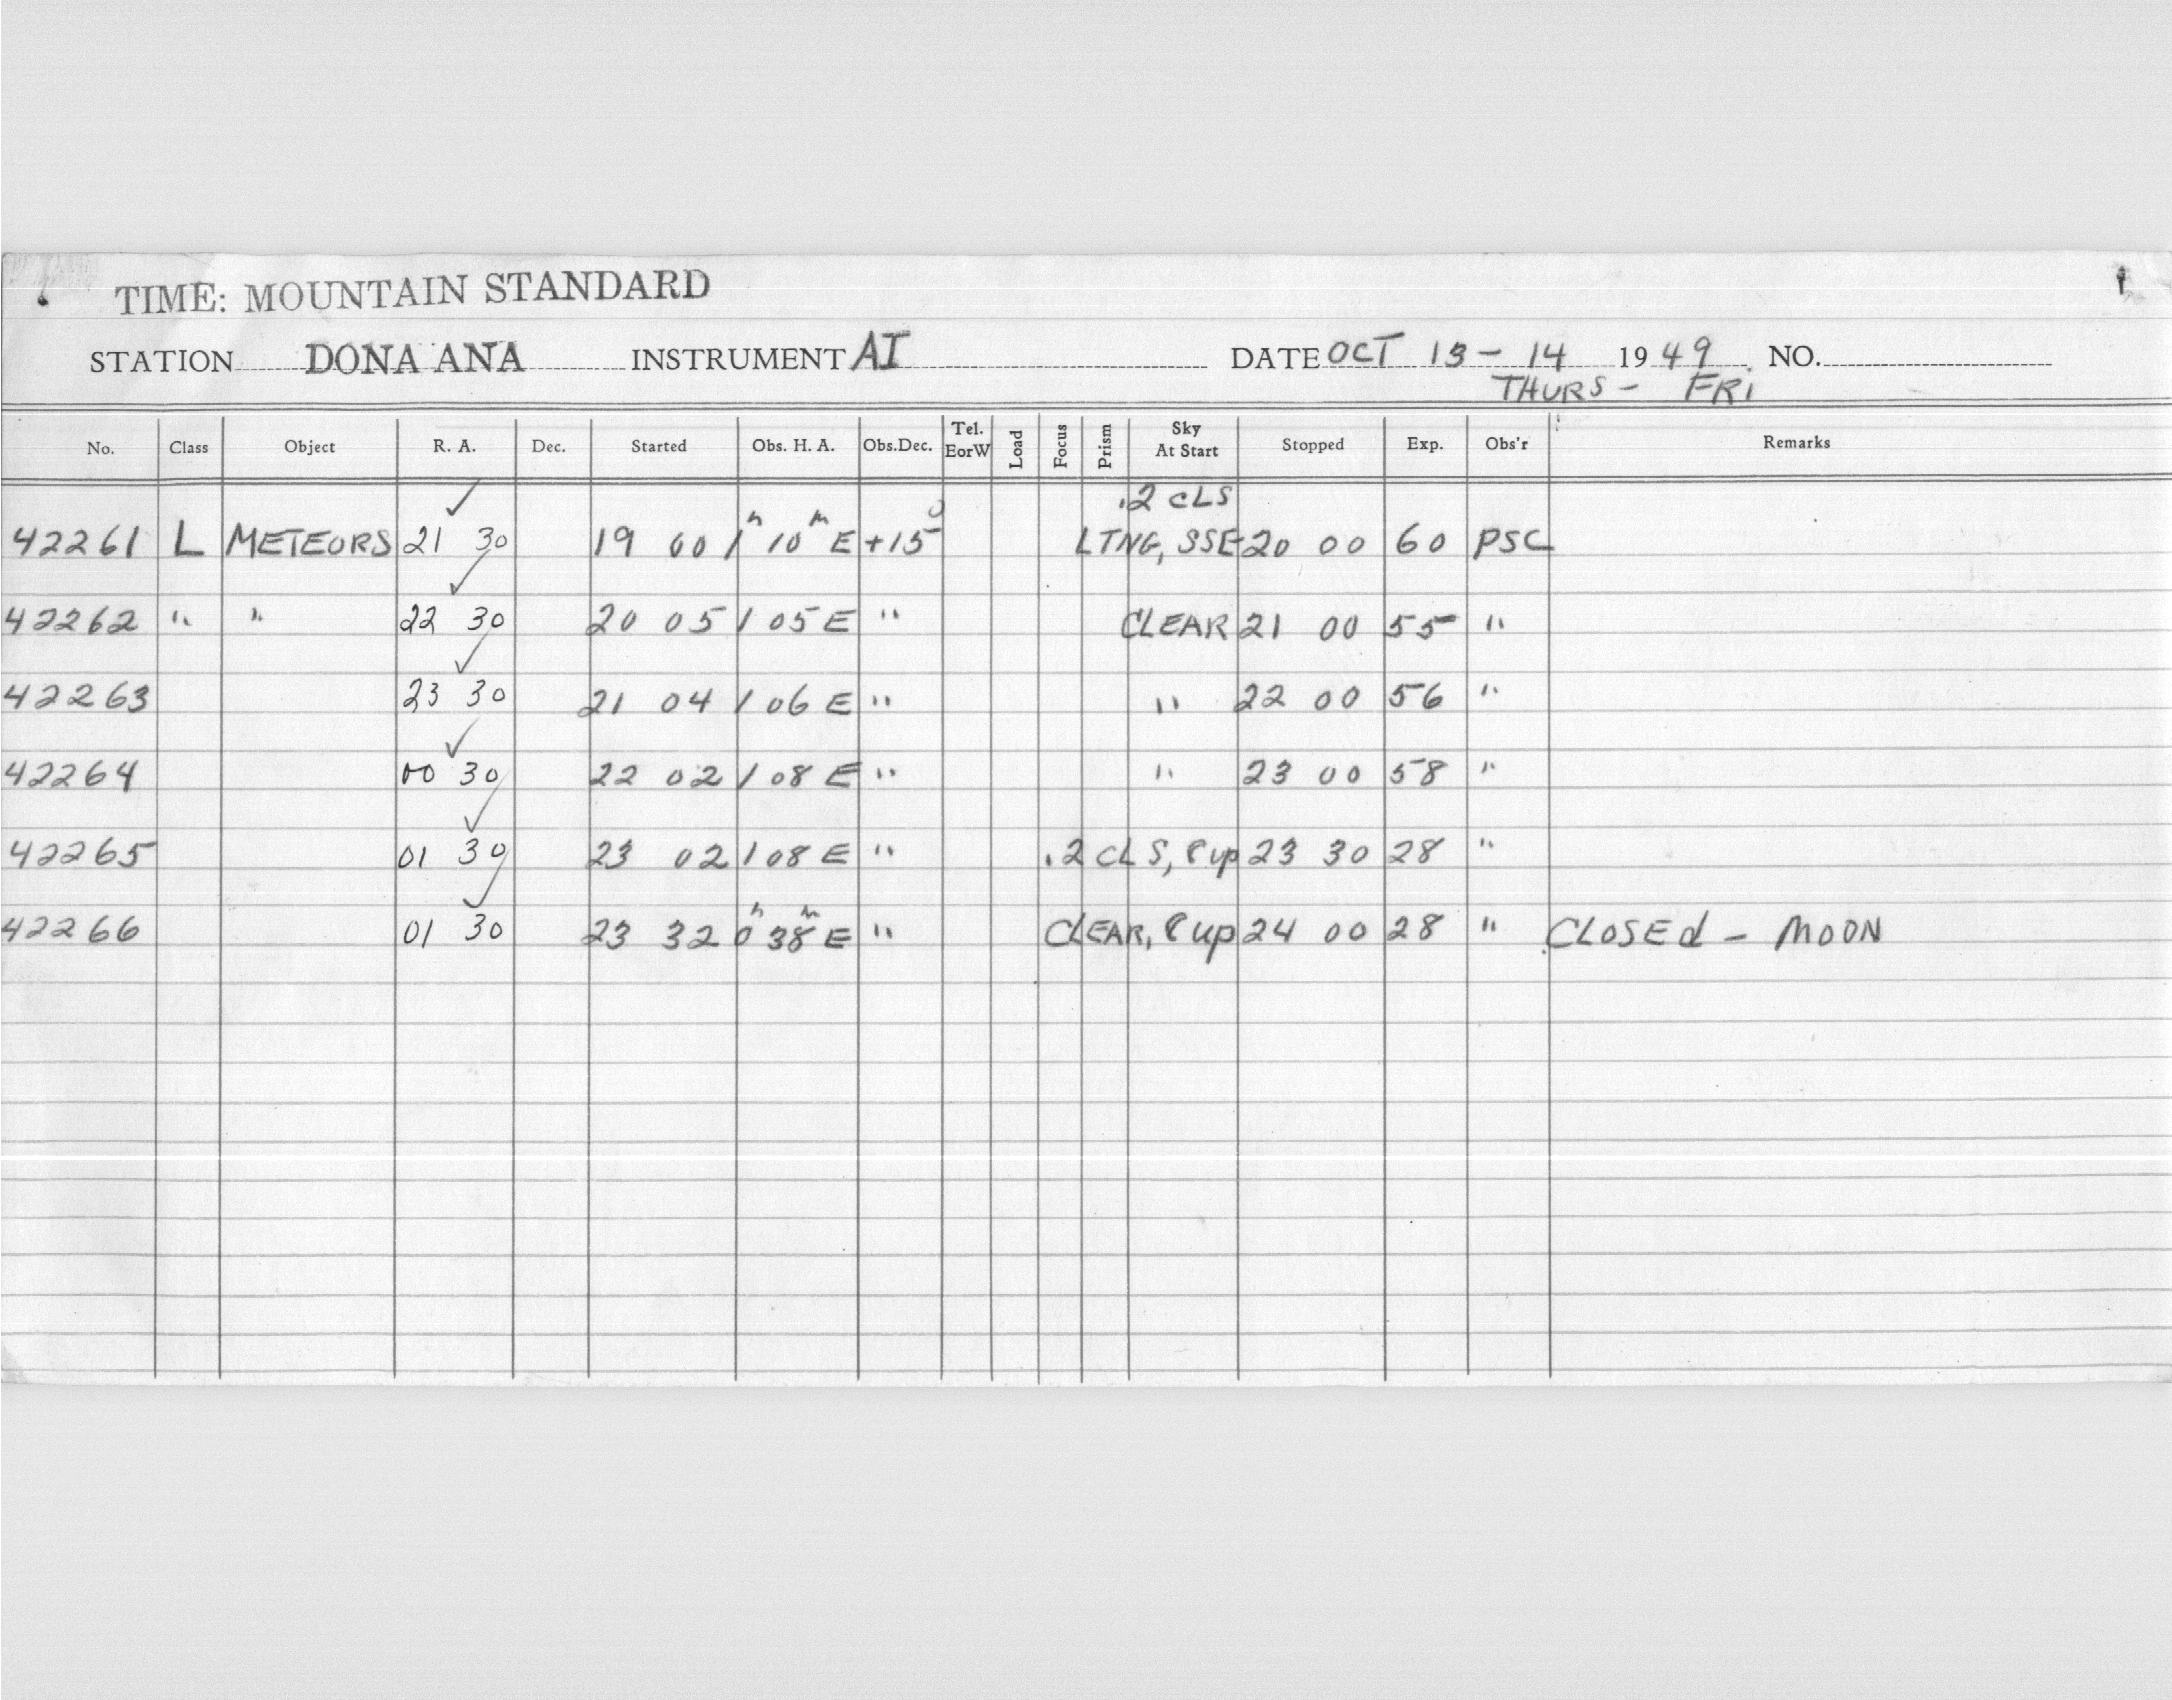 TIME: MOUNTAIN STANDARD
STATION DONA ANA INSTRUMENT AI DATE OCT 13 - 14 1949 NO.
THURS - FRI
No. Class Object R. A. Dec. Started Obs. H. A. Obs.Dec. Tel. EorW Load Focus Prism Sky At Start Stopped Exp. Obs'r Remarks
✓ .2 CLS
42261 L METEORS 21 30 19 00 1ʰ 10ᵐ E +15° LTNG, SSE 20 00 60 PSC
✓
42262 " " 22 30 20 05 1 05 E " CLEAR 21 00 55 "
✓
42263 23 30 21 04 1 06 E " " 22 00 56 "
✓
42264 00 30 22 02 1 08 E " " 23 00 58 "
✓
42265 01 30 23 02 1 08 E " .2 CLS, up 23 30 28 "
✓
42266 01 30 23 32 0ʰ 38ᵐ E " CLEAR, up 24 00 28 " CLOSEd - MOON